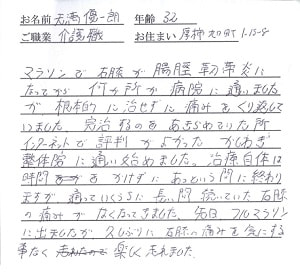 お名前 光満 俊一朗 年齢 32
ご職業 介護職 お住まい 厚木 1-13-8
マラソンで右膝が腸脛靭帯炎に
なってから何か所か病院に通いました
が根本的に治せずに痛みをくり返して
いました。完治するのをあきらめていた所
インターネットで評判がよかったかしわぎ
整体院に通い始めました。治療自体は
時間をかけずにあっという間に終わり
ますが、通っていくうちに長い間続いていた右膝
の痛みがなくなってきました。先日フルマラソン
に出ましたが久しぶりに右膝の痛みを気にする
事なく楽しく走れました。